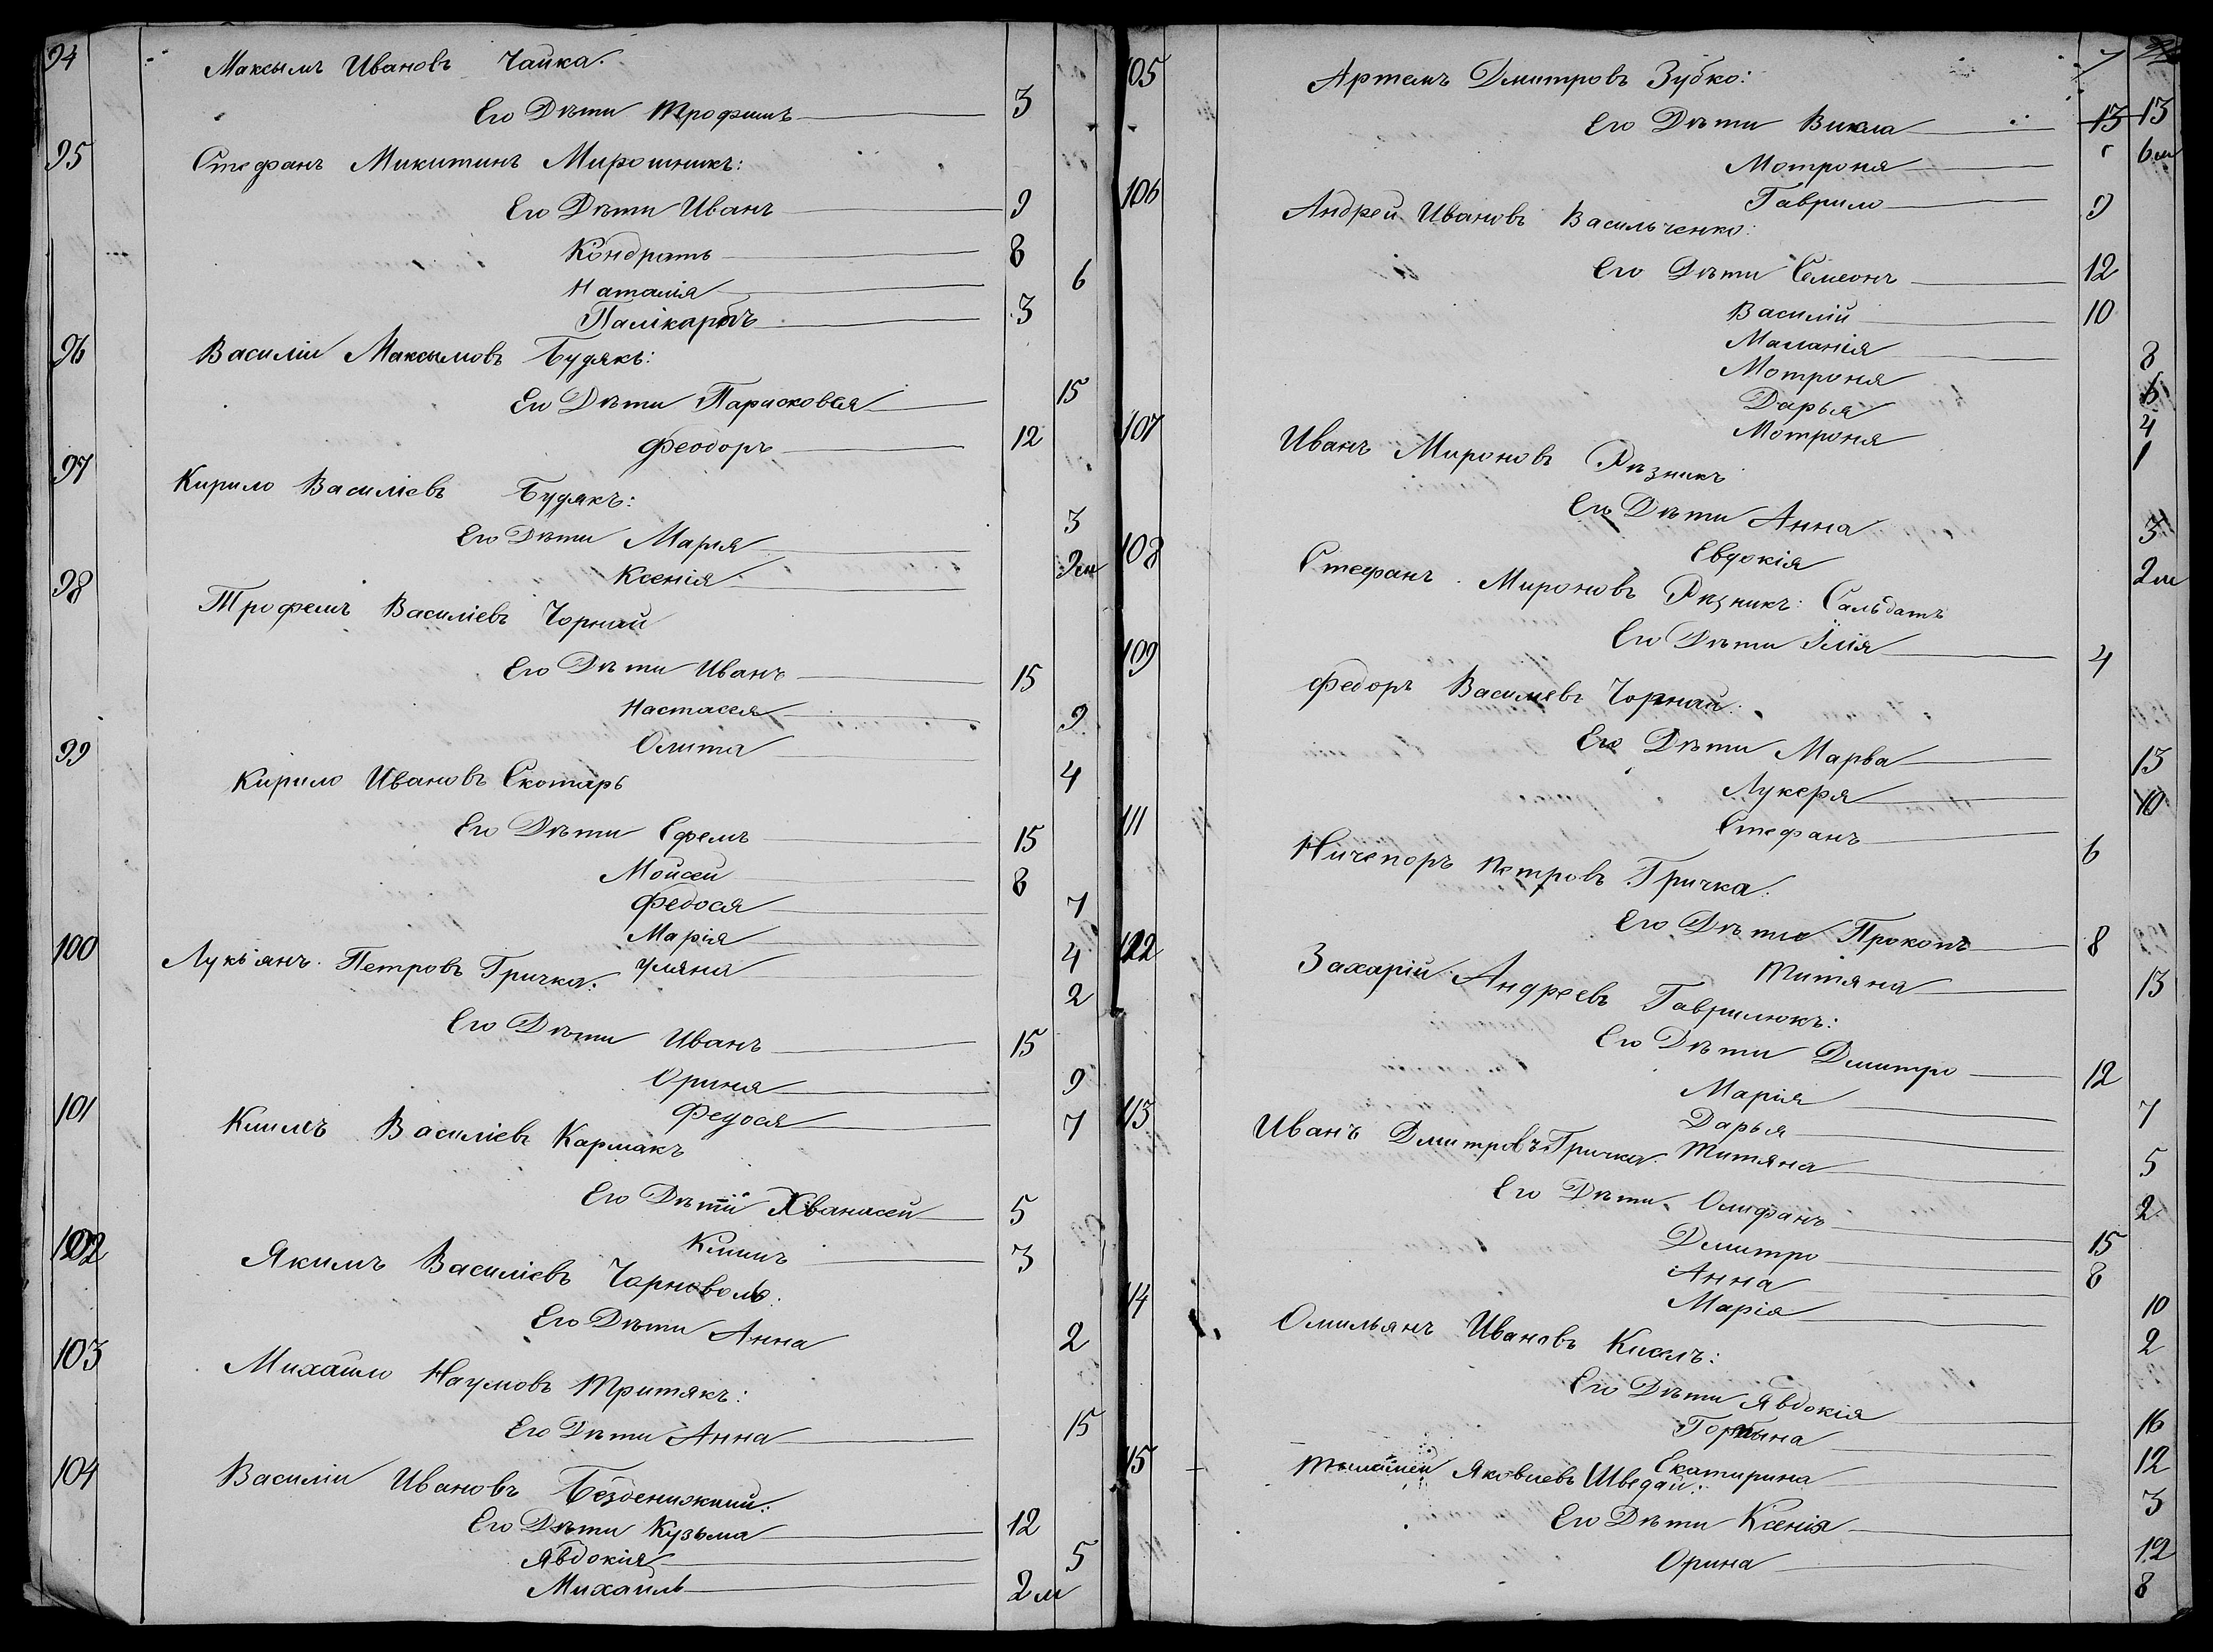 94 Максымъ Ивановъ Чайка.
Его Дѣти Трофимъ 3
95 Стефанъ Микитинъ Мирошникъ:
Его Дѣти Иванъ 9
Кондратъ 8
Наталія 6
Палікарпъ 3
96 Василіи Максымовъ Будякъ:
Ег Дѣти Парасковея 15
Феодоръ 12
97 Кирило Василіевъ Будякъ:
Его Дѣти Марія 3
Ксенія 9 м
98 Трофемъ Василіевъ Чорнай
Его Дѣти Иванъ 15
Настасея 9
Олита 4
99 Кирило Ивановъ Скотаръ
Его Дѣти Ефемъ 15
Мойсей 8
Федося 7
Марія 4
Уляна 2
100 Лукіянъ Петровъ Гричка:
Его Дѣти Иванъ 15
Орина 9
Федося 7
101 Климъ Василіевъ Кармакъ
Его Дѣтй Хванасей 5
Климъ 3
102 Якимъ Василіевъ Чарноволъ.
Его Дѣти Анна 2
103 Михайло Наумовъ Тритякъ:
Его Дѣти Анна 15
104 Василіи Ивановъ
Его Дѣти Кузьма 12
Явдокія 5
Михайлъ 2 м
7
105 Артемъ Дмитровъ Зубко:
Его Дѣти Викла 13 13
Мотроня 6 м
Гаврило 9
106 Андрей Ивановъ Васильченко:
Его Дѣти Семеонъ 12
Василій 10
Маланія 8
Мотроня 6
Дарья 4
Мотроня 1
107 Иванъ Мироновъ Рѣзникъ
Его Дѣти Анна 3
Евдокія 2 м
108 Стефанъ Мироновъ Рѣзникъ: Сальдатъ
Его Дѣти Ілія 4
109 Федоръ Василіевъ Чорнай:
Его Дѣти Марва 13
Лукеря 10
Стефанъ 6
111 Ничепоръ Петровъ Гричка.
Его Дѣти Прокопъ 8
Титяна 13
112 Захарій Андреевъ Гаврилюкъ:
Его Дѣти Дмитро 12
Марія 7
Дарья 5
Титяна 2
113 Иванъ Дмитровъ Гричка
Его Дѣти Олифанъ 15
Дмитро 8
Анна 10
Марія 2
114 Омильянъ Ивановъ Кисель:
Его Дѣти Явдокія 16
Горпына 12
Екатирина 3
115 Яковлевъ Шведай:
Его Дѣти Ксенія 12
Орина 8